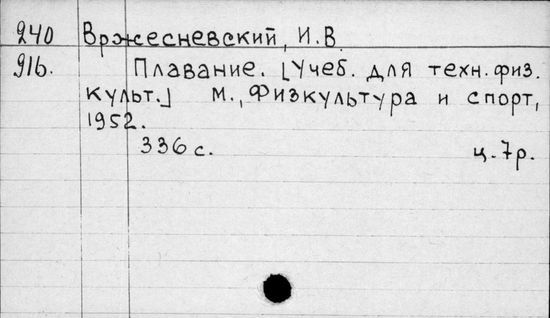 240 Вржесневский, И.В.
916. Плавание. [Учеб. для техн. физ.
культ.] М., Физкультура и спорт,
1952.
336 с. ц. 7р.